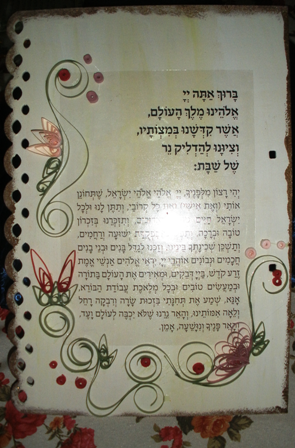 בָּרוּךְ אַתָּה יְיָ
אֱלֹהֵינוּ מֶלֶךְ הָעוֹלָם,
אֲשֶׁר קִדְּשָׁנוּ בְּמִצְוֹתָיו,
וְצִוָּנוּ לְהַדְלִיק נֵר
שֶׁל שַׁבָּת:
יְהִי רָצוֹן מִלְּפָנֶיךָ, יְיָ אֱלֹהַי אֱלֹהֵי יִשְׂרָאֵל, שֶׁתְּחוֹנֵן
אוֹתִי וְכָל קְרוֹבַי, וְתִתֵּן לָנוּ וּלְכָל
יִשְׂרָאֵל חַיִּים וְתִזְכְּרֵנוּ בְּזִכְרוֹן
טוֹבָה וּבְרָכָה, יְשׁוּעָה וְרַחֲמִים,
וְתַשְׁכֵּן שְׁכִינָתְךָ בֵּינֵינוּ, וְזַכֵּנוּ לְגַדֵּל בָּנִים וּבְנֵי בָנִים
חֲכָמִים וּנְבוֹנִים אוֹהֲבֵי יְיָ, יִרְאֵי אֱלֹהִים אַנְשֵׁי אֱמֶת
זֶרַע קֹדֶשׁ, בַּייָ דְּבֵקִים, וּמְאִירִים אֶת הָעוֹלָם בַּתּוֹרָה
וּבְמַעֲשִׂים טוֹבִים וּבְכָל מְלֶאכֶת עֲבוֹדַת הַבּוֹרֵא.
אָנָּא, שְׁמַע אֶת תְּחִנָּתִי בִּזְכוּת שָׂרָה וְרִבְקָה רָחֵל
וְלֵאָה אִמּוֹתֵינוּ, וְהָאֵר נֵרֵנוּ שֶׁלֹּא יִכְבֶּה לְעוֹלָם וָעֶד,
וְהָאֵר פָּנֶיךָ וְנִוָּשֵׁעָה, אָמֵן.